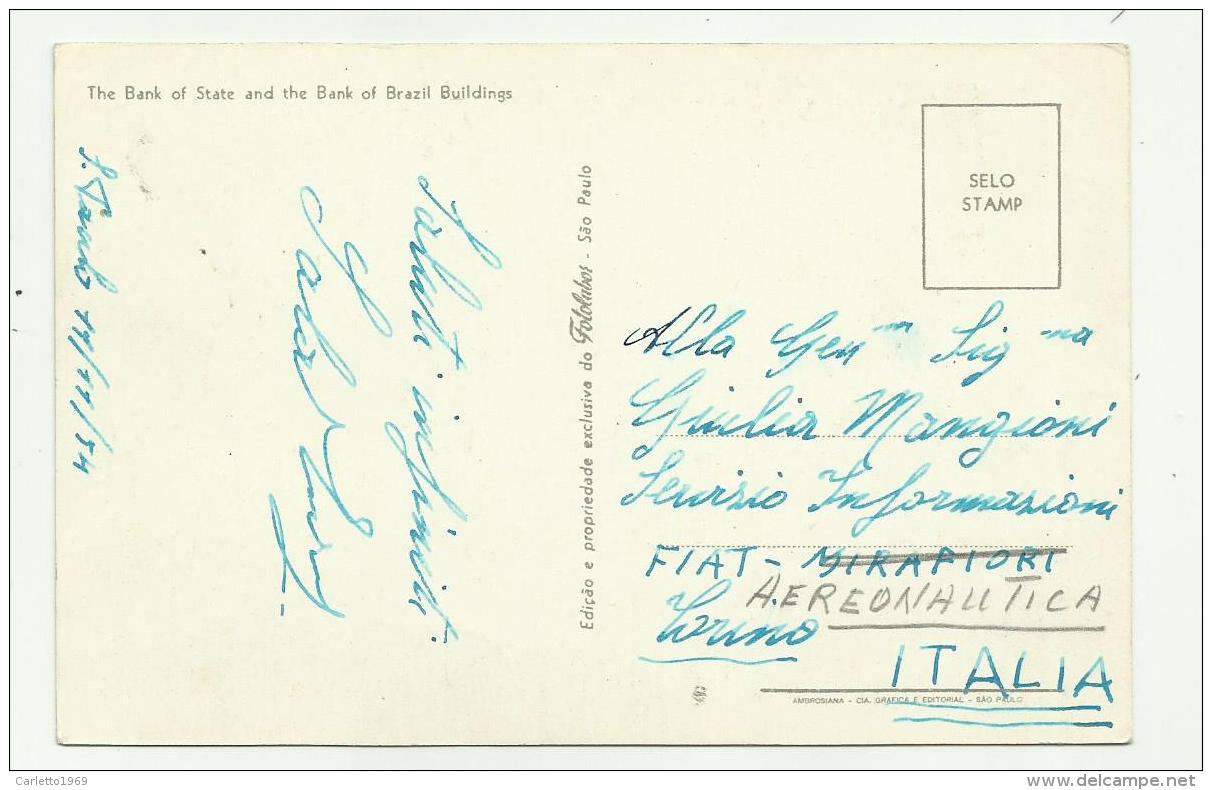 The Bank of State and the Bank of Brazil Buildings
S. Paulo 19/11/54
Saluti infiniti
Edição e propriedade exclusiva do Fotolabor - São Paulo
SELO
STAMP
Alla Gen ma Sig na
Giulia Mangioni
Servizio Informazioni
FIAT - MIRAFIORI
AEREONAUTICA
Torino
ITALIA
AMBROSIANA - CIA. GRAFICA E EDITORIAL - SÃO PAULO
Carletto1969
delcampe.net